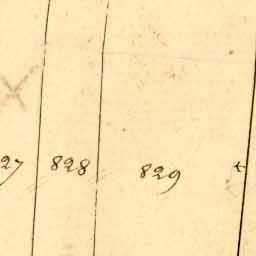 27 828 829